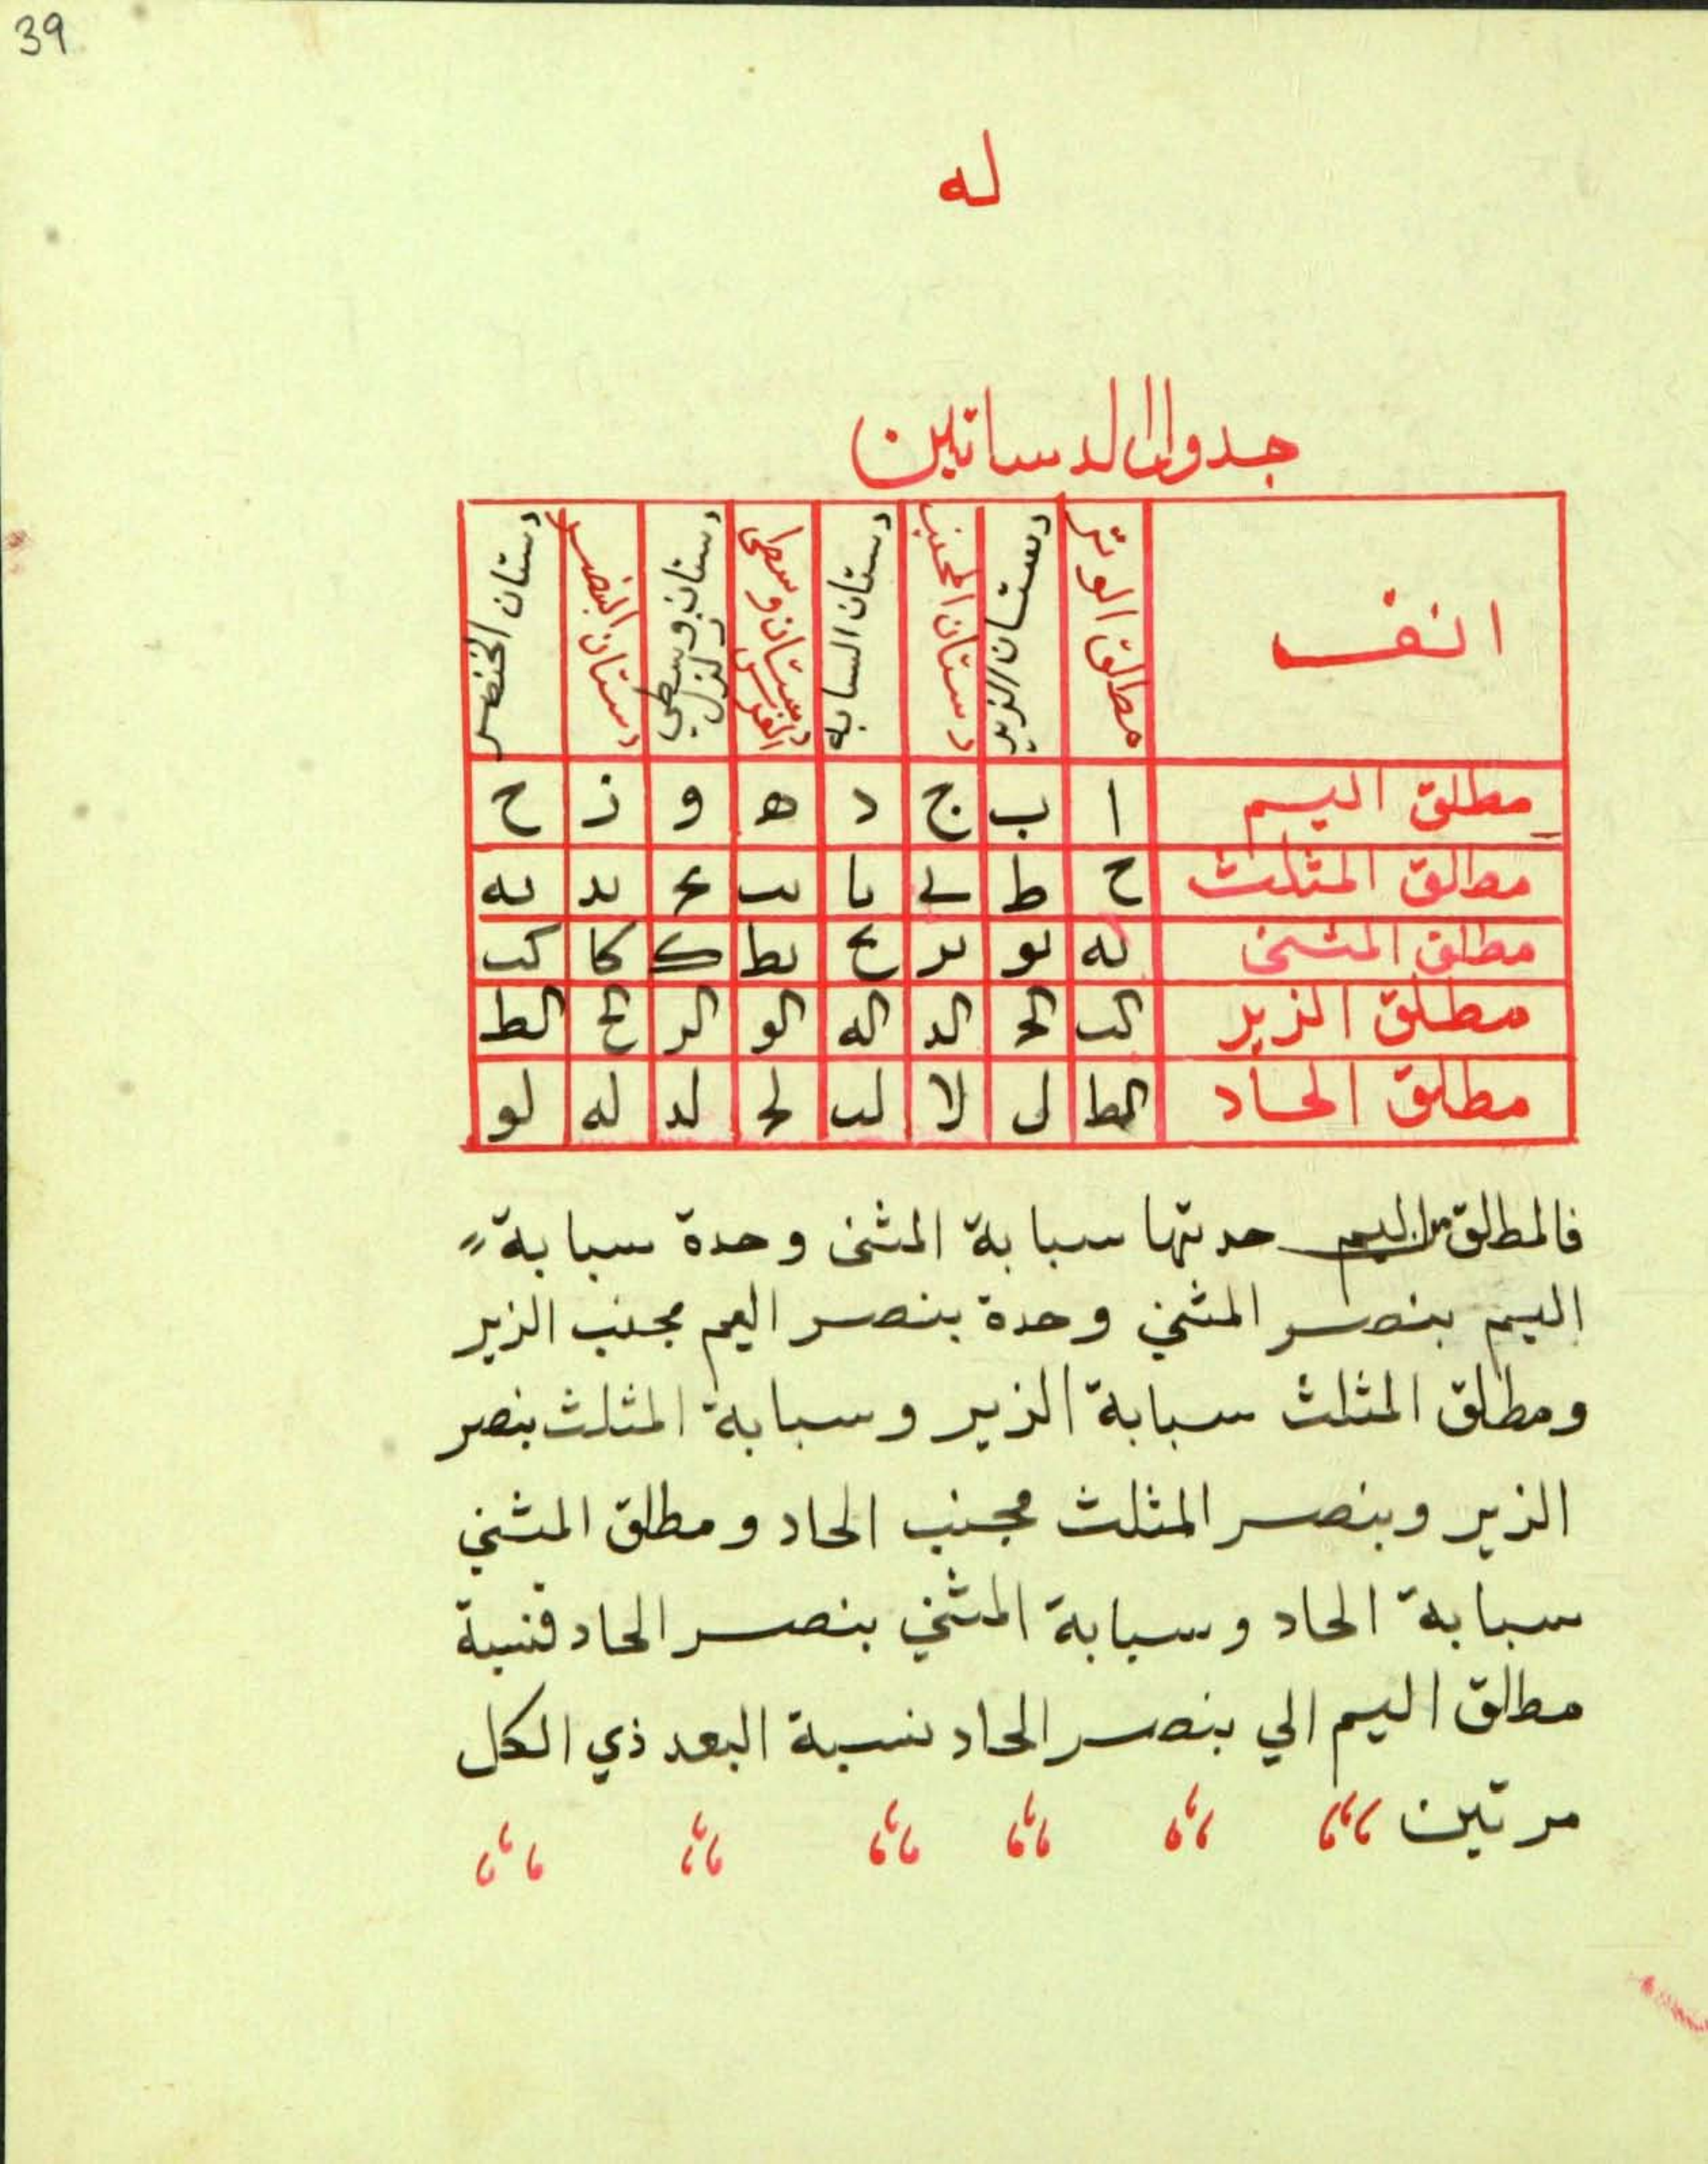 39
له
جدوال الدساتين
انف مطلق الوتر دستان الزير دستان المجنب دستان السبابه دستان وسطى الفرس دستان وسطي زلزل دستان البنصر دستان الخنصر
مطلق اليم ا ب ج د ه و ز ح
مطلق المثلث ح ط ى يا يب يح يد يه
مطلق المثنى يه يو ير يح يط ك كا كب
مطلق الزير الب الح الد اله الو الر الح الط
مطلق الحاد الط ل لا لب لح لد له لو
فالمطلق اليم حدتها سبابة المثنى وحدة سبابة
اليم بنصر المثني وحدة بنصر اليم مجنب الزير
ومطلق المثلث سبابة الزير وسبابة المثلث بنصر
الزير وبنصر المثلث مجنب الحاد ومطلق المثني
سبابة الحاد وسبابة المثني بنصر الحاد فنسبة
مطلق اليم الي بنصر الحاد نسبة البعد ذي الكل
مرتين